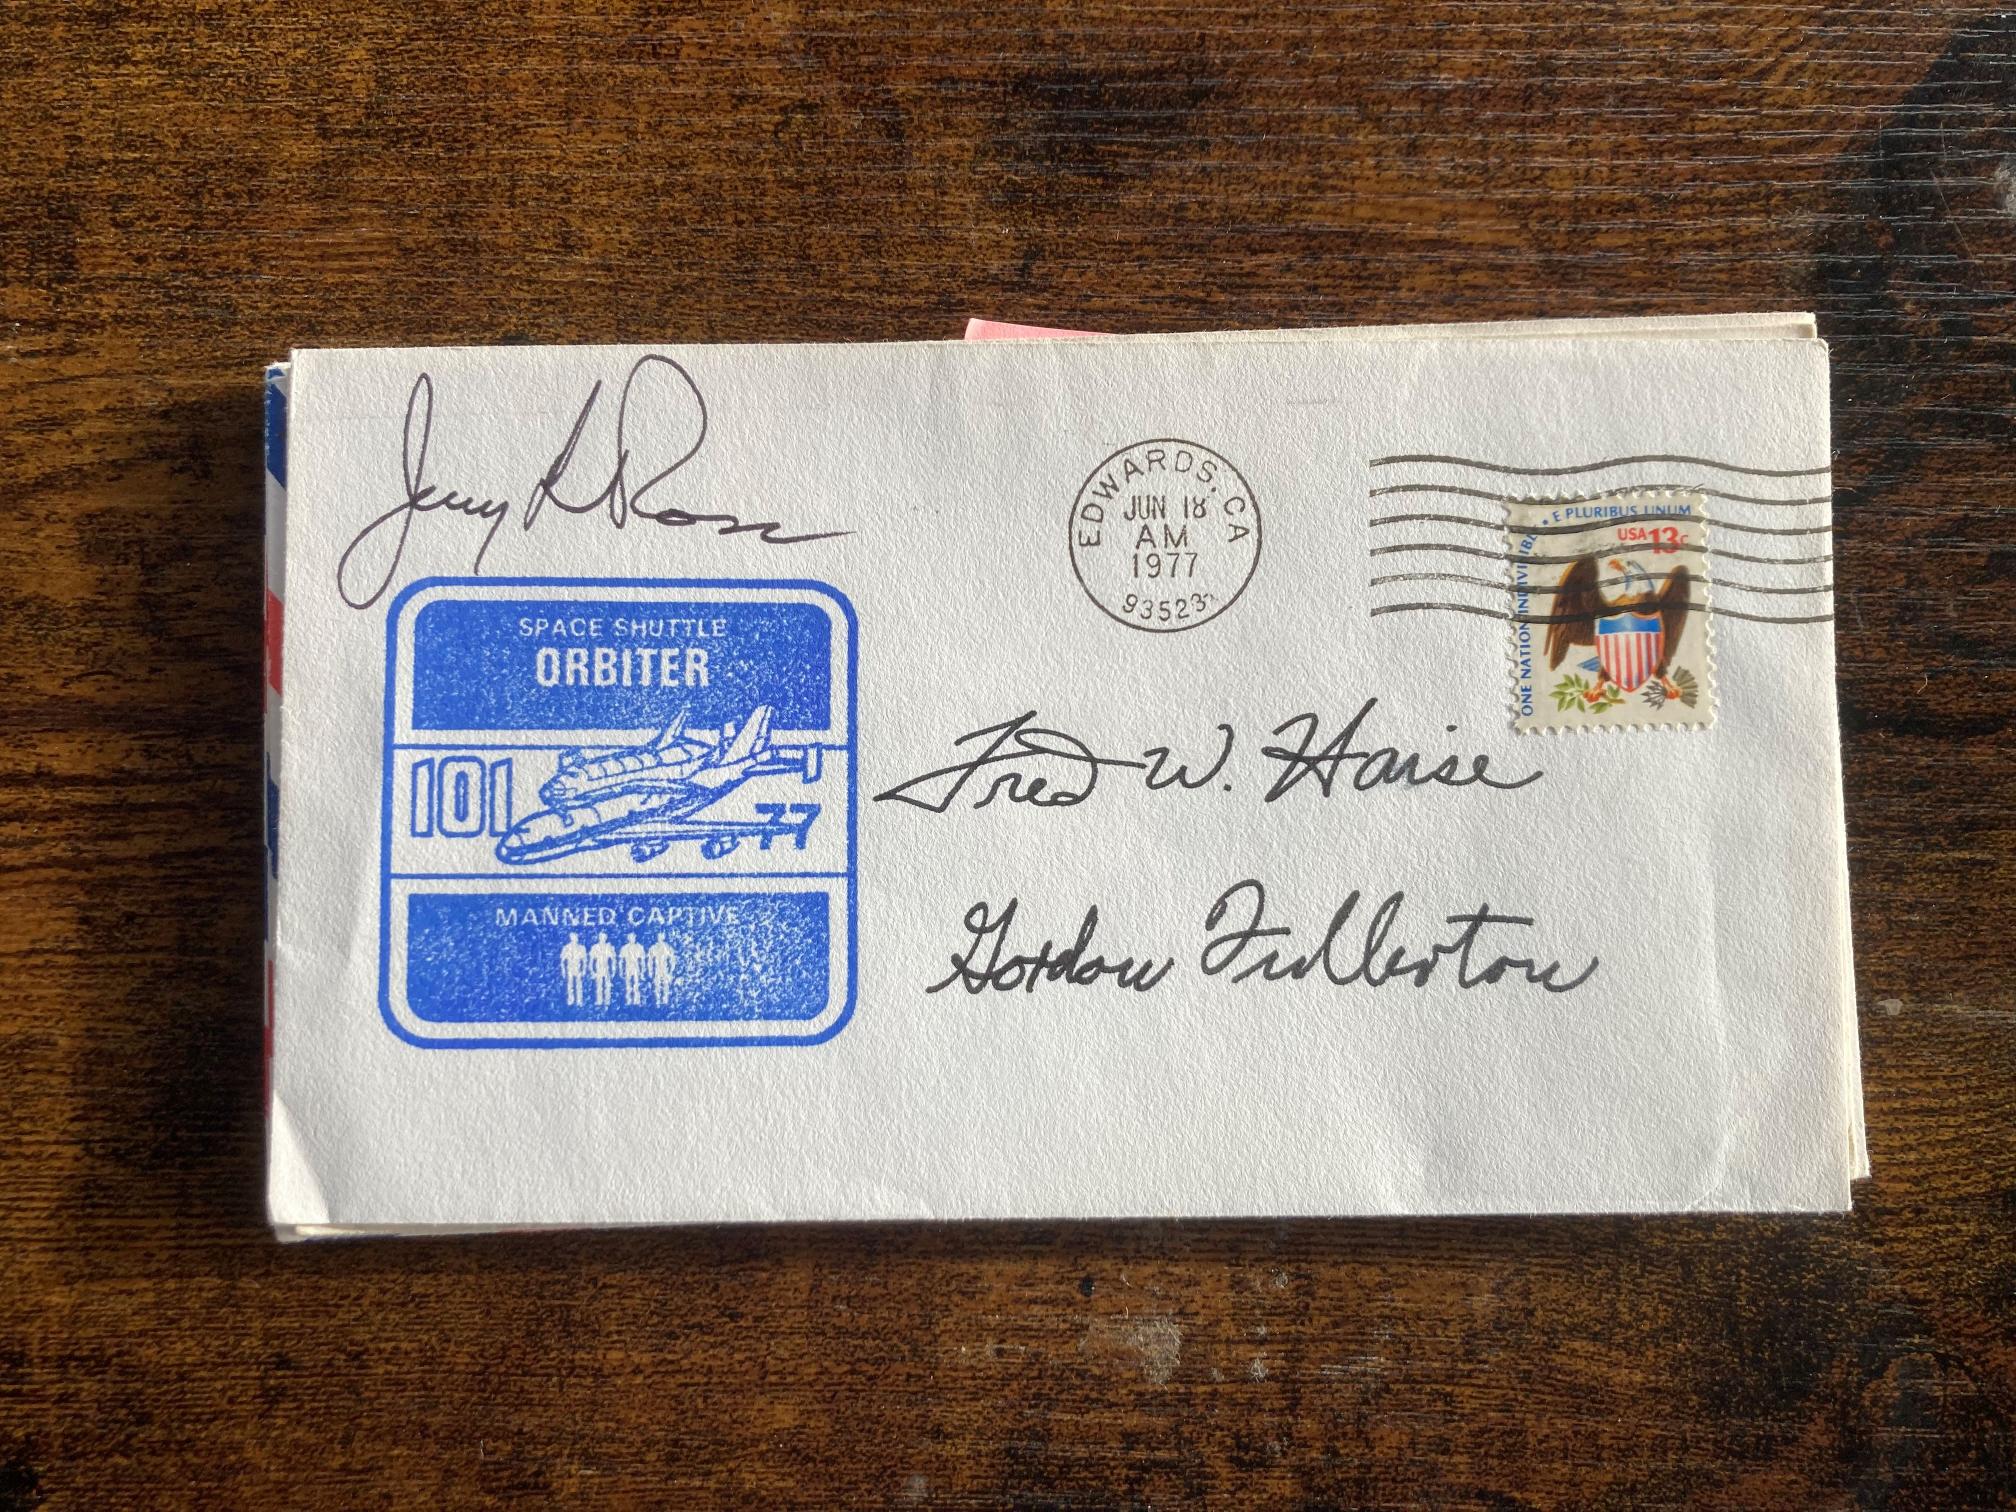 Jerry L Ross
EDWARDS, CA
JUN 18
AM
1977
93523
ONE NATION INDIVISIBLE • E PLURIBUS UNUM
USA 13c
SPACE SHUTTLE
ORBITER
101
77
MANNED CAPTIVE
Fred W. Haise
Gordon Fullerton